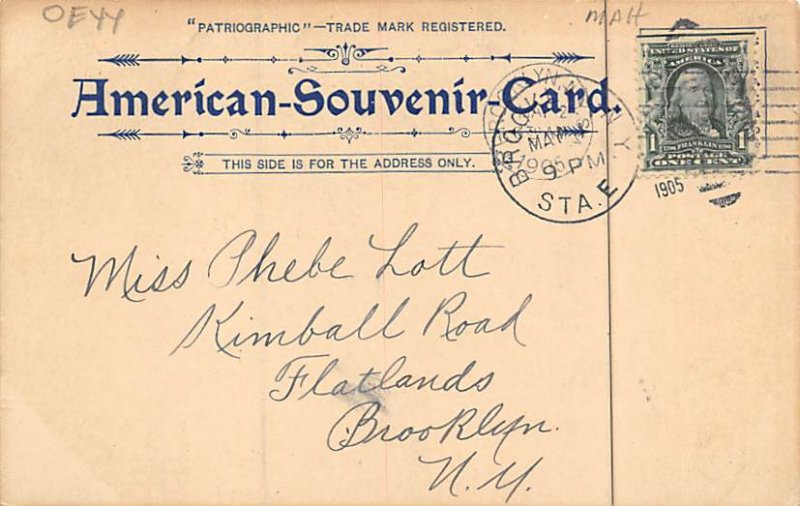 OEYY
MAH
"PATRIOGRAPHIC"—TRADE MARK REGISTERED.
American-Souvenir-Card.
THIS SIDE IS FOR THE ADDRESS ONLY.
BROOKLYN N.Y.
MAY
1905
9 PM
STA. E
1905
UNITED STATES OF
AMERICA
1 FRANKLIN 1
Miss Phebe Lott
Kimball Road
Flatlands
Brooklyn.
N.Y.